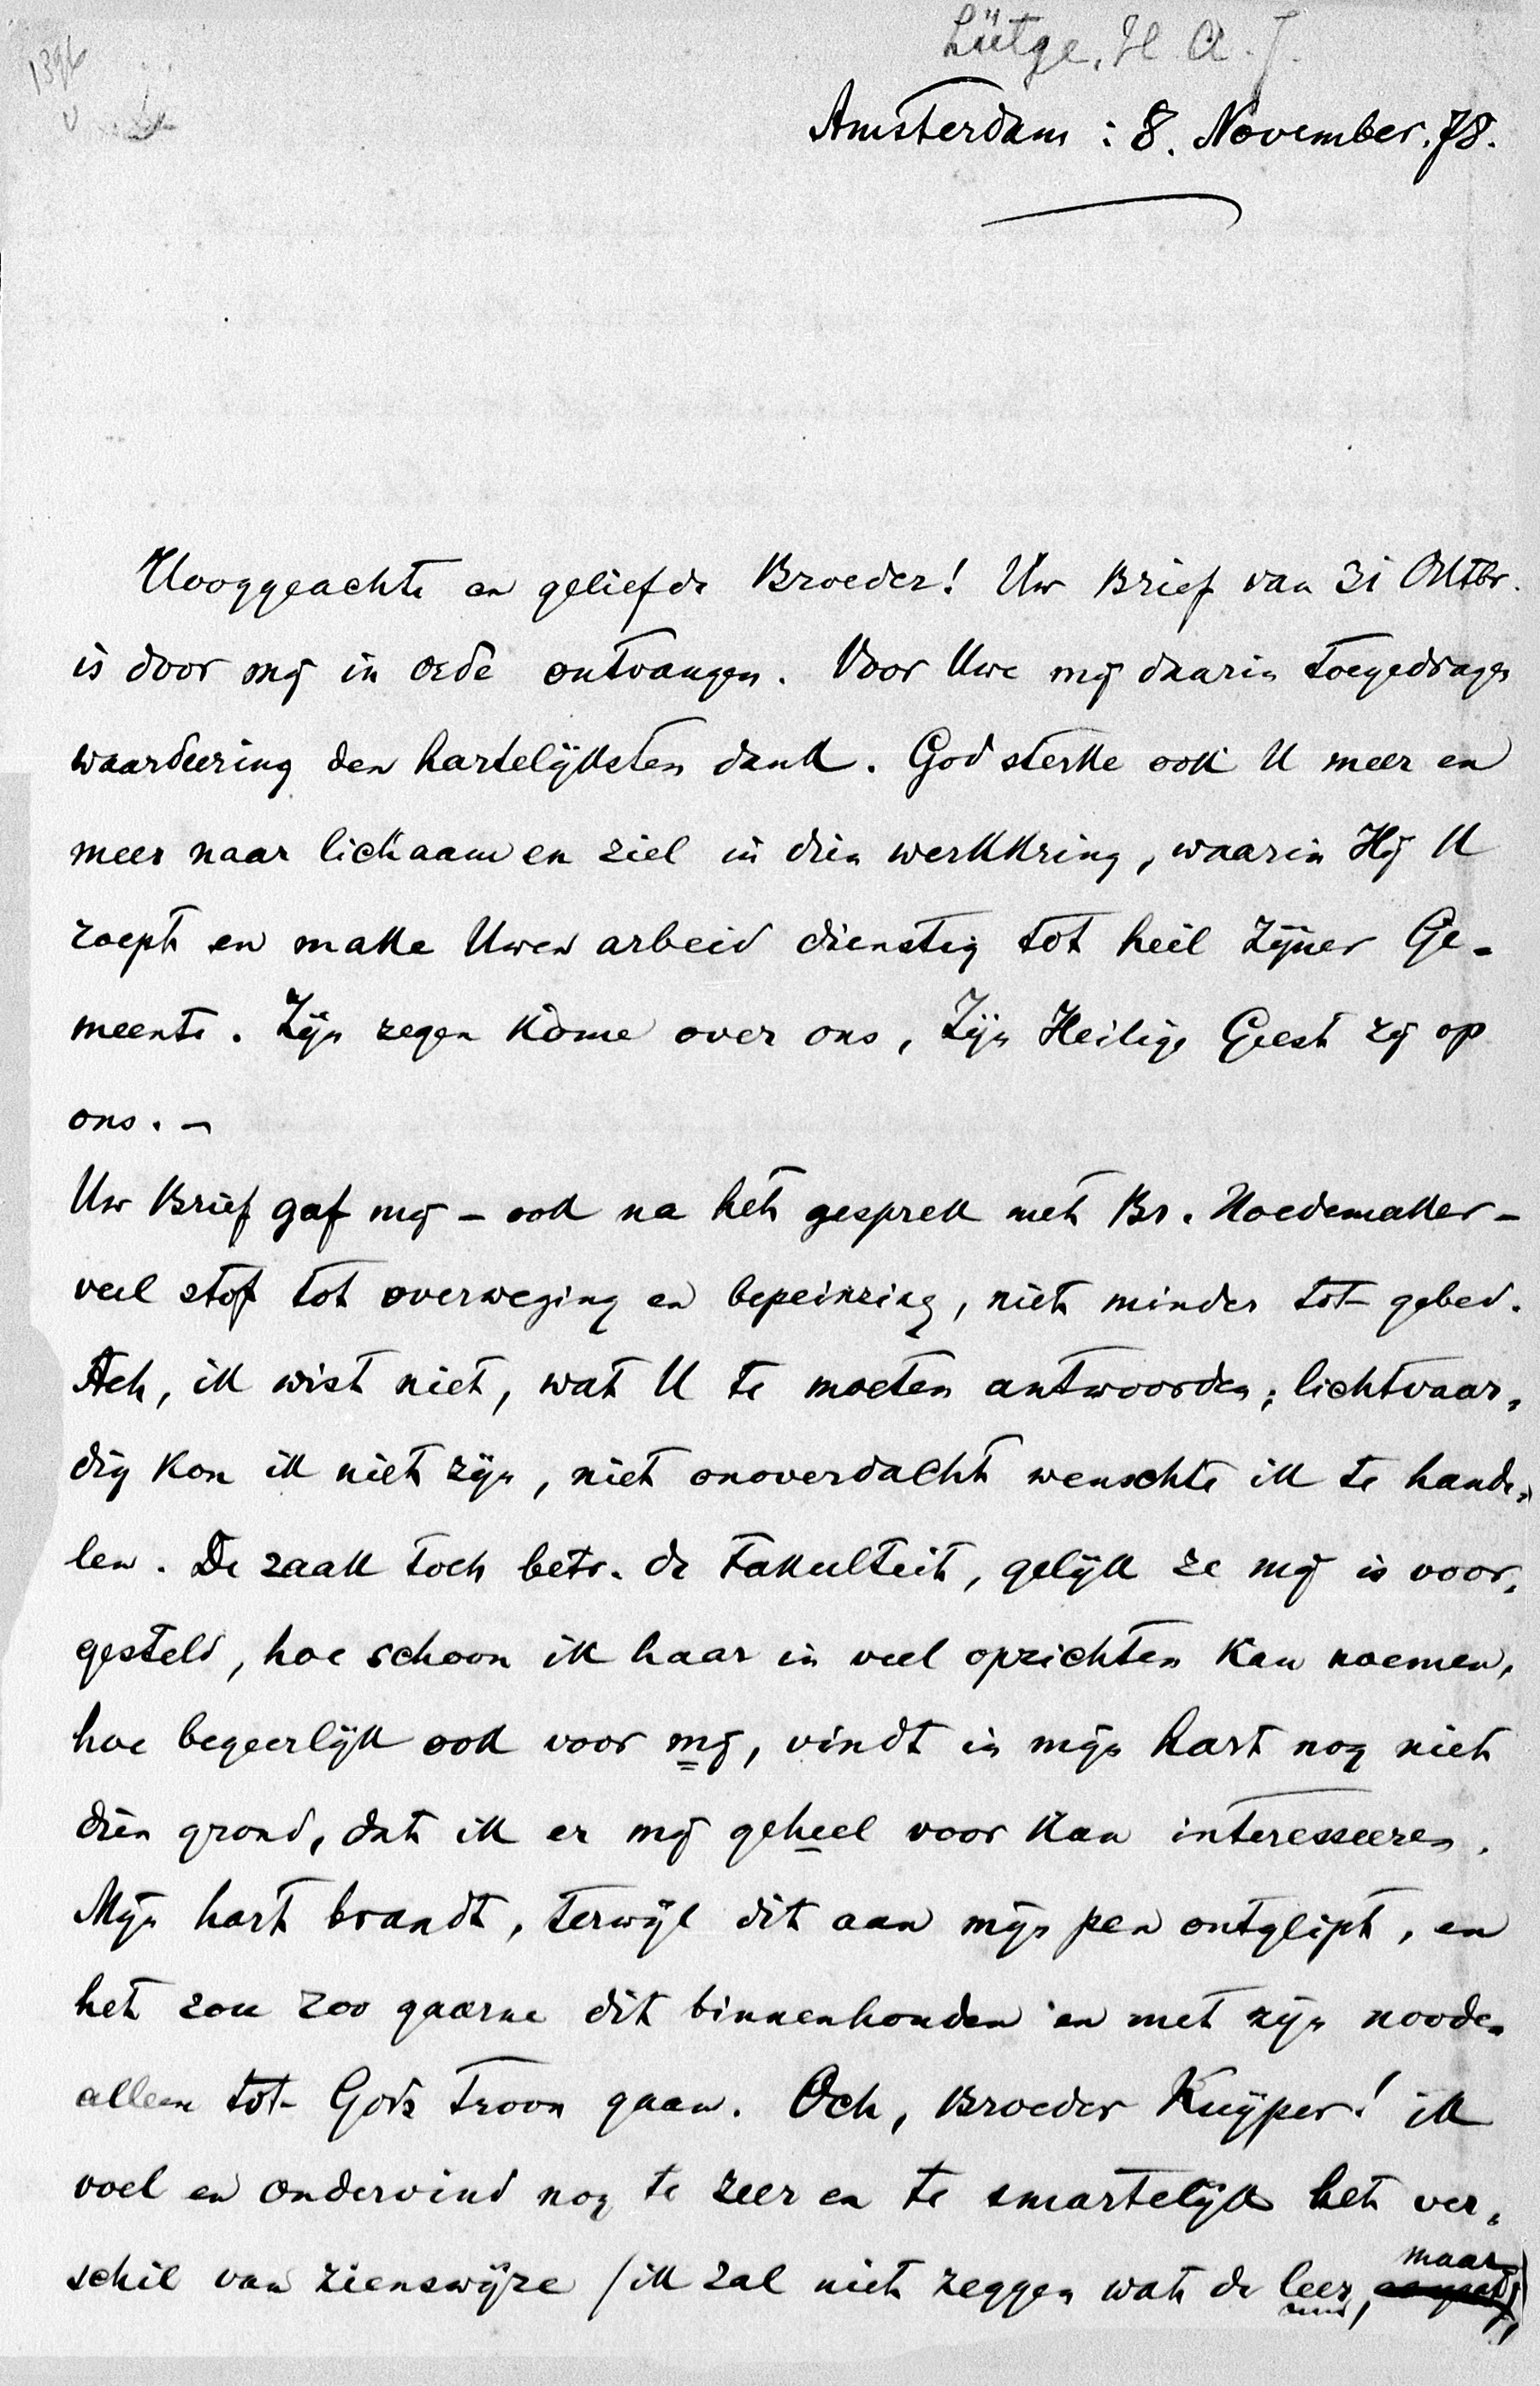 1396
Lütge, H. A. J.
Amsterdam : 8. November. 78.
Hooggeachte en geliefde Broeder! Uw Brief van 31 Oktbr.
is door mij in orde ontvangen. Voor Uwe mij daarin toegedragen
waardeering den hartelijksten dank. God sterke ook U meer en
meer naar lichaam en ziel in dien werkkring, waarin Hij U
roept en make Uwen arbeid dienstig tot heil Zijner Ge-
meente. Zijn zegen kome over ons, Zijn Heilige Geest zij op
ons. -
Uw Brief gaf mij - ook na het gesprek met Br. Hoedemaker -
veel stof tot overweging en bepeinzing, niet minder tot gebed.
Ach, ik wist niet, wat U te moeten antwoorden; lichtvaar-
dig kon ik niet zijn, niet onoverdacht wenschte ik te hande-
len. De zaak toch betr. de Fakulteit, gelijk ze mij is voor-
gesteld, hoe schoon ik haar in veel opzichten kan noemen,
hoe begeerlijk ook voor mij, vindt in mijn hart nog niet
dien grond, dat ik er mij geheel voor kan interesseeren.
Mijn hart brandt, terwijl dit aan mijn pen ontglipt, en
het zou zoo gaarne dit binnenhouden en met zijn nooden
alleen tot Gods Troon gaan. Och, Broeder Kuijper! ik
voel en ondervind nog te zeer en te smartelijk het ver-
schil van zienswijze (ik zal niet zeggen wat de leer, maar